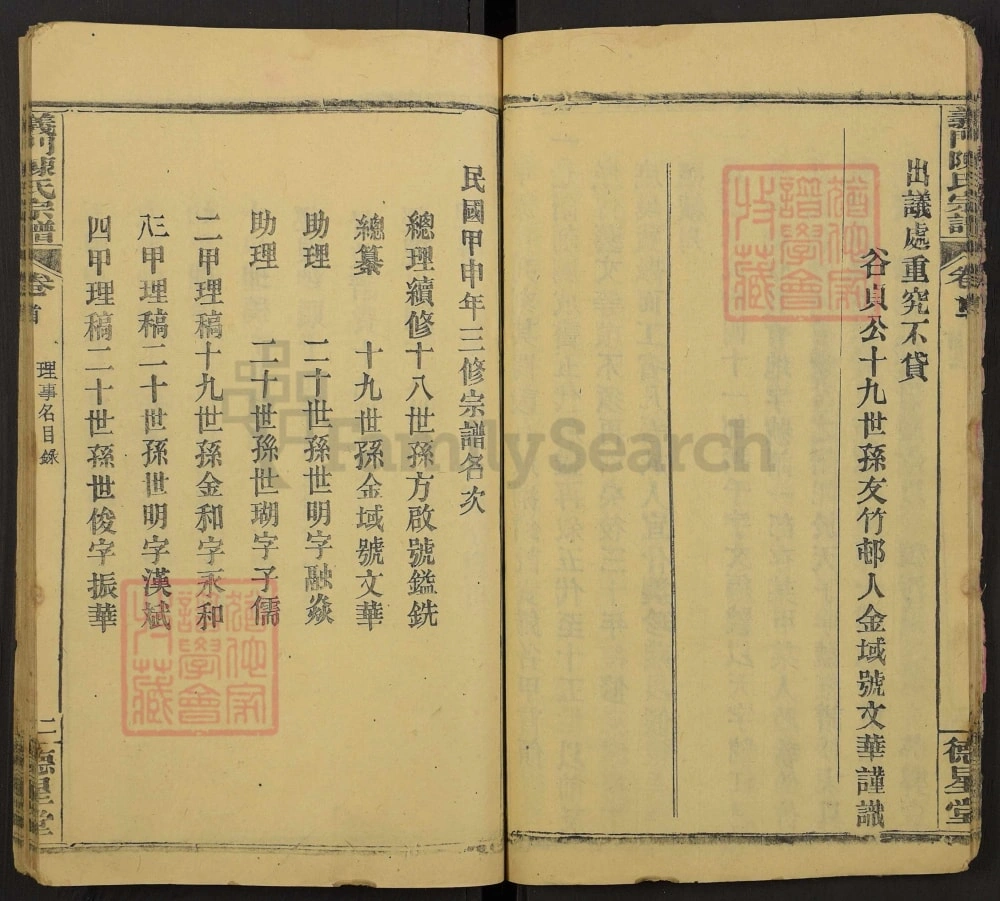 義門陳氏宗譜
卷首
德星堂
出議處重究不貸
谷貞公十九世孫友竹邨人金域號文華謹識
民國甲申年三修宗譜名次
總理續修十八世孫方啟號鎰銑
總纂 十九世孫金域號文華
助理 二十世孫世明字融焱
助理 二十世孫世瑚字子儒
二甲理稿十九世孫金和字永和
三甲理稿二十世孫世明字漢斌
四甲理稿二十世孫世俊字振華
義門陳氏宗譜
卷首
理事名目錄
二
德星堂
FamilySearch